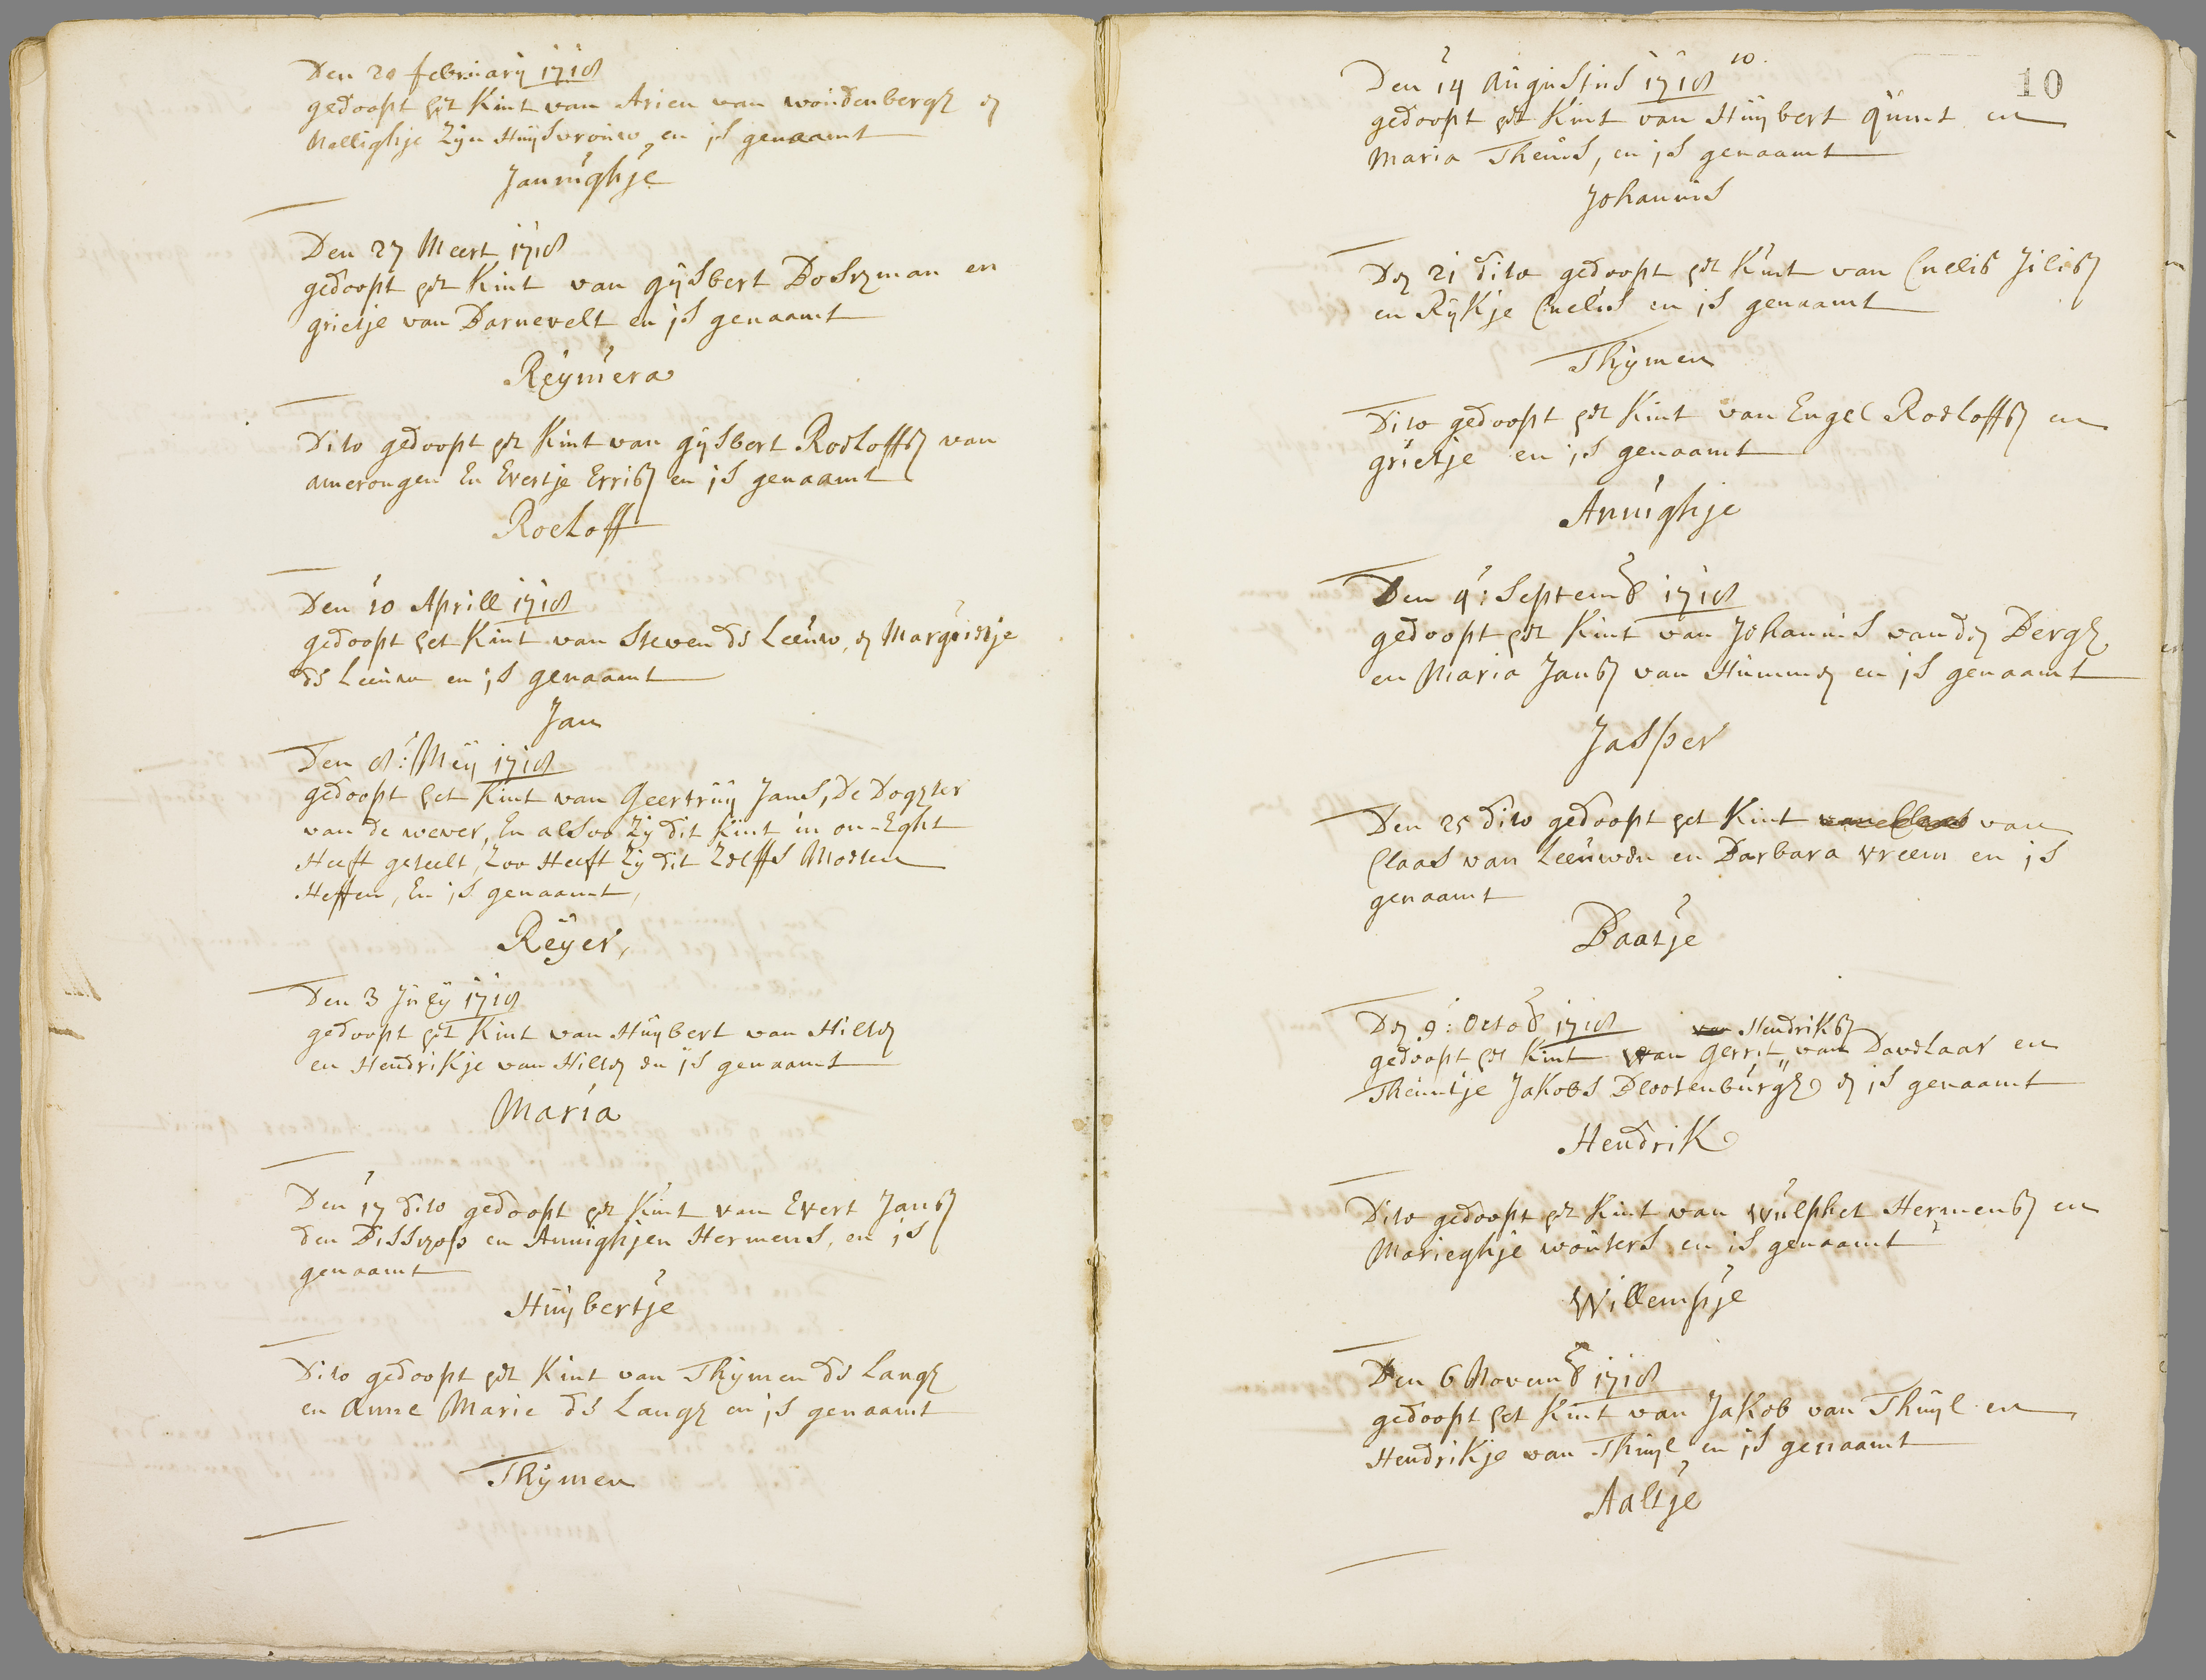 Den 20 februarij 1718
gedoopt het Kint van Arien van woudenbergh en
Nellighje Zijn Huijsvrouw, en is genaamt
Jannighje
Den 27 Meert 1718
gedoopt het Kint van gijsbert Boshman en
grietje van Barnevelt en is genaamt
Reijmera
Dito gedoopt het Kint van gijsbert Roeloffs van
amerongen En Evertje Erris en is genaamt
Roeloff
Den 10 Aprill 1718
gedoopt het Kint van Steven de Leeuw, en Margrietje
de Leeuw en is genaamt
Jan
Den 8: Meij 1718
gedoopt het Kint van Geertruij Jans, De Doghter
van de wever, En alsoo Zij dit Kint in on-Eght
Heeft geteelt, Zoo Heeft Zij dit Zelffs Moeten
Heffen, En is genaamt,
Reijer,
Den 3 Julij 1718
gedoopt het Kint van Huijbert van Hilten
en Hendrikje van Hilten en is genaamt
Maria
Den 17 dito gedoopt het Kint van Evert Jans
den Bisschop en Annighjen Hermens, en is
genaamt
Huijbertje
Dito gedoopt het Kint van Thijmen de Langh
en Anne Marie de Langh en is genaamt
Thijmen
10.
10
Den 14 Augustus 1718
gedoopt het Kint van Huijbert quint en
Maria Theunis, en is genaamt
Johannis
Den 21 dito gedoopt het Kint van Cnelis Jilis
en Rijkje Cnelis en is genaamt
Thijmen
Dito gedoopt het Kint van Engel Roeloffs en
grietje en is genaamt
Annighje
Den 4: Septemb 1718
gedoopt het Kint van Johannis van den Bergh
en Maria Jans van Hummen en is genaamt
Jasper
Den 25 dito gedoopt het Kint van Claas van
Claas van Leeuwen en Barbara vreem en is
genaamt
Baatje
Den 9: Octob 1718 van Hendriks
gedoopt het Kint van Gerrit van Davelaar en
Theuntje Jakobs Blootenburgh en is genaamt
Hendrik
Dito gedoopt het Kint van wulphet Hermens en
Marieghje wouters en is genaamt
Willempje
Den 6 Novemb 1718
gedoopt het Kint van Jakob van Thuijl en
Hendrikje van Thuijl en is genaamt
Aaltje